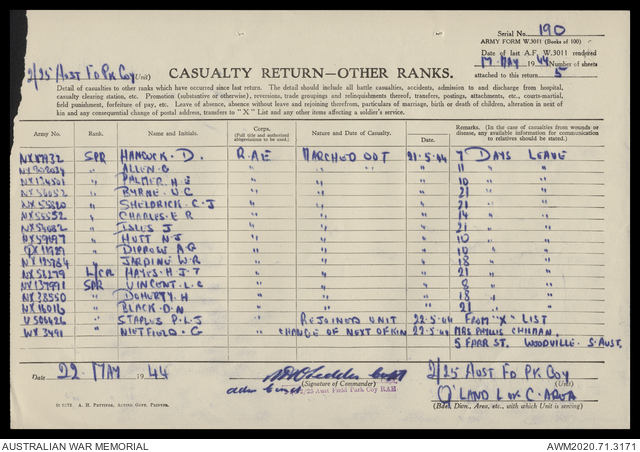 Serial No. 190
ARMY FORM W.3011 (Books of 100)
Date of last A.F. W.3011 rendered
17 MAY 1944 Number of sheets
attached to this return 5
2/25 AUST FD PK COY (Unit)
CASUALTY RETURN—OTHER RANKS.
Detail of casualties to other ranks which have occurred since last return. The detail should include all battle casualties, accidents, admission to and discharge from hospital,
casualty clearing station, etc. Promotion (substantive or otherwise), reversions, trade groupings and relinquishments thereof, transfers, postings, attachments, etc., courts-martial,
field punishment, forfeiture of pay, etc. Leave of absence, absence without leave and rejoining therefrom, particulars of marriage, birth or death of children, alteration in next of
kin and any consequential change of postal address, transfers to "X" List and any other items affecting a soldier's service.
Army No. Rank. Name and Initials. Corps. (Full title and authorized abbreviations to be used.) Nature and Date of Casualty. Date. Remarks. (In the case of casualties from wounds or disease, any available information for communication to relatives should be stated.)
SPR HANCOCK. D. R.A.E MARCHED OUT 21-5-44 7 DAYS LEAVE
" ALLEN. G " " " " 11 " "
" PALMER. H. E " " " 10 " "
" BYRNE. W. C " " " 21 " "
NX55820 " SHELDRICK. C. J " " " 21 " "
NX55552 " CHARLES. E R " " " 14 " "
" ISLES J " " " 21 " "
NX59197 " HUTT N. J " " " 10 " "
QX11929 " DIPROSE A. G " " " 10 " "
" JARDINE. W. R " " " 18 " "
NX52279 L/CPL HAYES. H. J. T " " " 21 " "
NX137991 SPR VINCENT. L. C " " " 8 " "
NX38550 " DOHERTY. H " " " 18 " "
" BLACK. D. N " " " 21 " "
V506426 " STAPLES P. L. J " REJOINED UNIT 22-5-44 FROM "X" LIST
WX3491 " NIETFIELD. G " CHANGE OF NEXT OF KIN 22-5-44 MRS PHYLLIS
5 FARR ST. WOODVILLE. S. AUST.
Date 22 MAY 1944
(Signature of Commander)
2/25 Aust Field Park Coy RAE
2/25 AUST FD PK COY (Unit)
Q'LAND L OF C. AREA
(Base, Divn., Area, etc., with which Unit is serving)
A. H. PETTIFER, ACTING GOVT. PRINTER.
AUSTRALIAN WAR MEMORIAL
AWM2020.71.3171